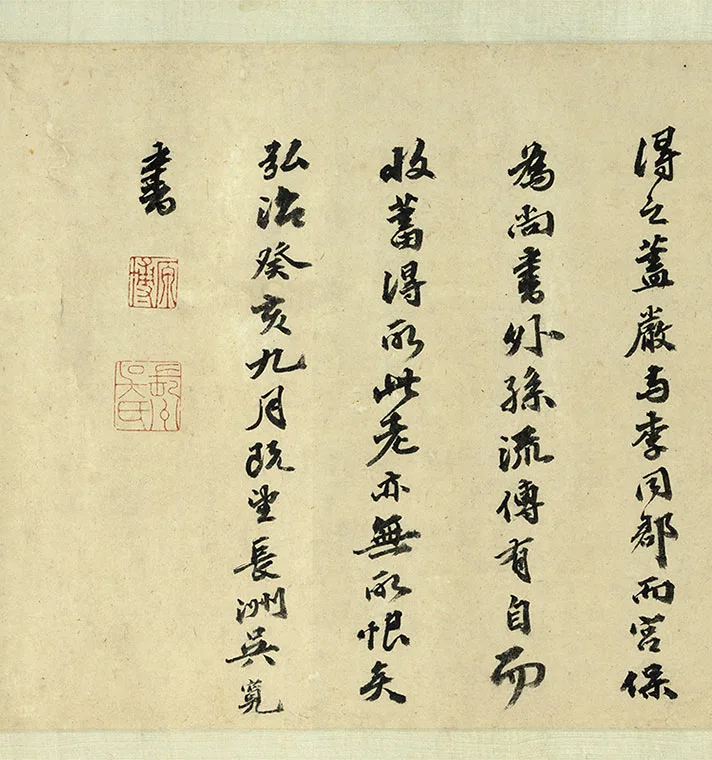 得之蓋嚴与李同郡而宮保
為尚書外孫流傳有自而
收蓄得所此老亦無所恨矣
弘治癸亥九月既望長洲吳寬
書
原博
吳氏